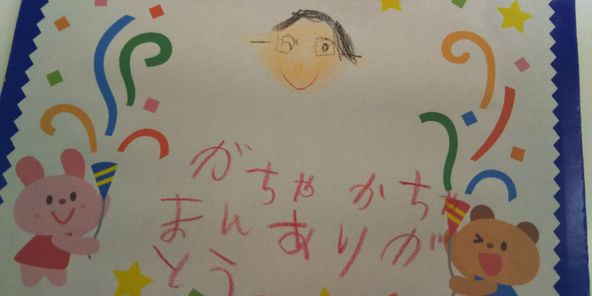 がちゃ かちゃ
まん ありが
とう